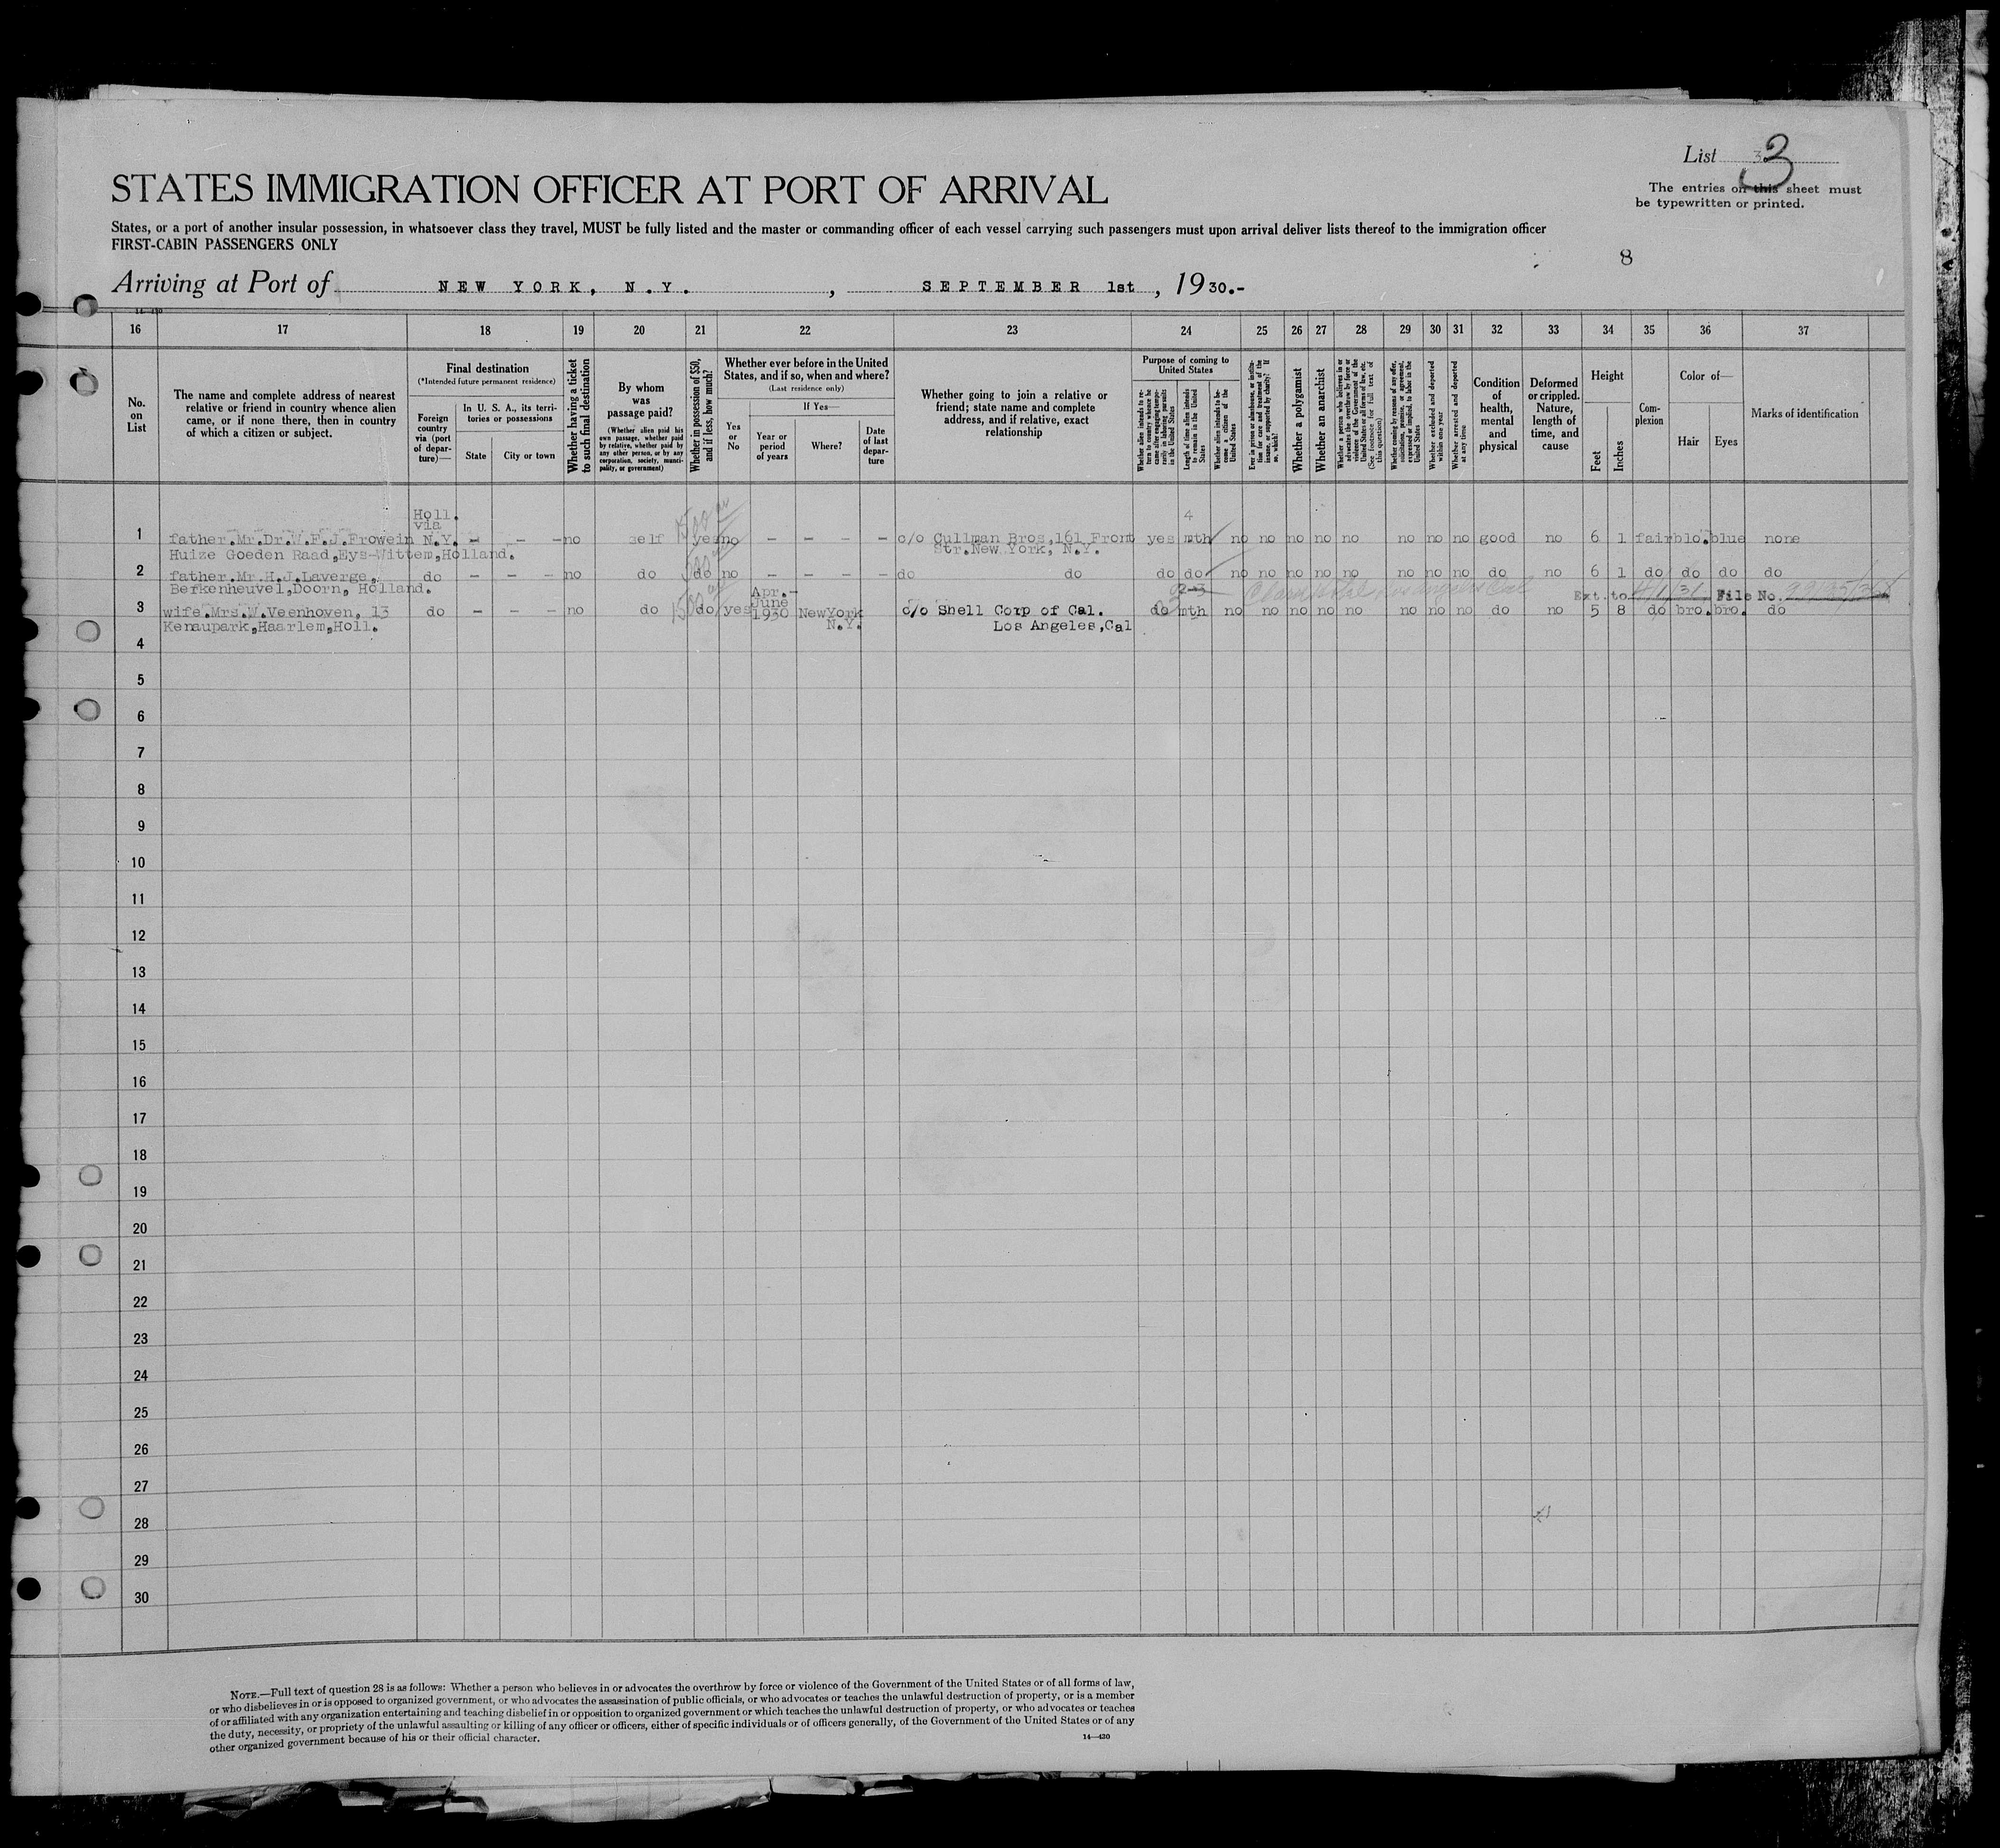 List 3
STATES IMMIGRATION OFFICER AT PORT OF ARRIVAL
The entries on this sheet must
be typewritten or printed.
States, or a port of another insular possession, in whatsoever class they travel, MUST be fully listed and the master or commanding officer of each vessel carrying such passengers must upon arrival deliver lists thereof to the immigration officer
FIRST-CABIN PASSENGERS ONLY
8
Arriving at Port of NEW YORK, N.Y. , SEPTEMBER 1st , 1930.-
16 17 18 19 20 21 22 23 24 25 26 27 28 29 30 31 32 33 34 35 36 37
No.
on
List
The name and complete address of nearest
relative or friend in country whence alien
came, or if none there, then in country
of which a citizen or subject.
Final destination
(*Intended future permanent residence)
Foreign
country
via (port
of depar-
ture)—
In U. S. A., its terri-
tories or possessions
State
City or town
Whether having a ticket
to such final destination
By whom
was
passage paid?
(Whether alien paid his
own passage, whether paid
by relative, whether paid
by any other person, or by any
corporation, society, munici-
pality, or government)
Whether in possession of $50,
and if less, how much?
Whether ever before in the United
States, and if so, when and where?
(Last residence only)
Yes
or
No
If Yes—
Year or
period
of years
Where?
Date
of last
depar-
ture
Whether going to join a relative or
friend; state name and complete
address, and if relative, exact
relationship
Purpose of coming to
United States
Whether alien intends to re-
turn to country whence he
came after engaging tempo-
rarily in laboring pursuits
in the United States
Length of time alien intends
to remain in the United
States
Whether alien intends to be-
come a citizen of the
United States
Ever in prison or almshouse, or institu-
tion for care and treatment of the
insane, or supported by charity? If
so, which?
Whether a polygamist
Whether an anarchist
Whether a person who believes in or
advocates the overthrow by force or
violence of the Government of the
United States or all forms of law, etc.
(See footnote for full text of
this question)
Whether coming by reasons of any offer,
solicitation, promise, or agreement,
expressed or implied, to labor in the
United States
Whether excluded and deported
within one year
Whether arrested and deported
at any time
Condition
of
health,
mental
and
physical
Deformed
or crippled.
Nature,
length of
time, and
cause
Height
Feet
Inches
Com-
plexion
Color of—
Hair
Eyes
Marks of identification
Holl.
via 4
1 father.Mr.Dr.W.F.J.Frowein N.Y. - - - no self yes no - - - - c/o Cullman Bros,161 Front yes mth no no no no no no no no good no 6 1 fair blo. blue none
Huize Goeden Raad,Eys-Wittem,Holland. Str.New York, N.Y.
2 father.Mr.H.J.Laverge, do - - - no do do no - - - - do do do do no no no no no no no no do no 6 1 do do do do
Berkenheuvel,Doorn, Holland. Apr.- 2-3
June Ext. to 4/1/31 File No.
3 wife.Mrs.W.Veenhoven, 13 do - - - no do do yes 1930 NewYork c/o Shell Corp of Cal. do mth no no no no no no no no do no 5 8 do bro. bro. do
Kenaupark,Haarlem,Holl. N.Y. Los Angeles,Cal
4
5
6
7
8
9
10
11
12
13
14
15
16
17
18
19
20
21
22
23
24
25
26
27
28
29
30
NOTE.—Full text of question 28 is as follows: Whether a person who believes in or advocates the overthrow by force or violence of the Government of the United States or of all forms of law,
or who disbelieves in or is opposed to organized government, or who advocates the assassination of public officials, or who advocates or teaches the unlawful destruction of property, or is a member
of or affiliated with any organization entertaining and teaching disbelief in or opposition to organized government or which teaches the unlawful destruction of property, or who advocates or teaches
the duty, necessity, or propriety of the unlawful assaulting or killing of any officer or officers, either of specific individuals or of officers generally, of the Government of the United States or of any
other organized government because of his or their official character.
14—430